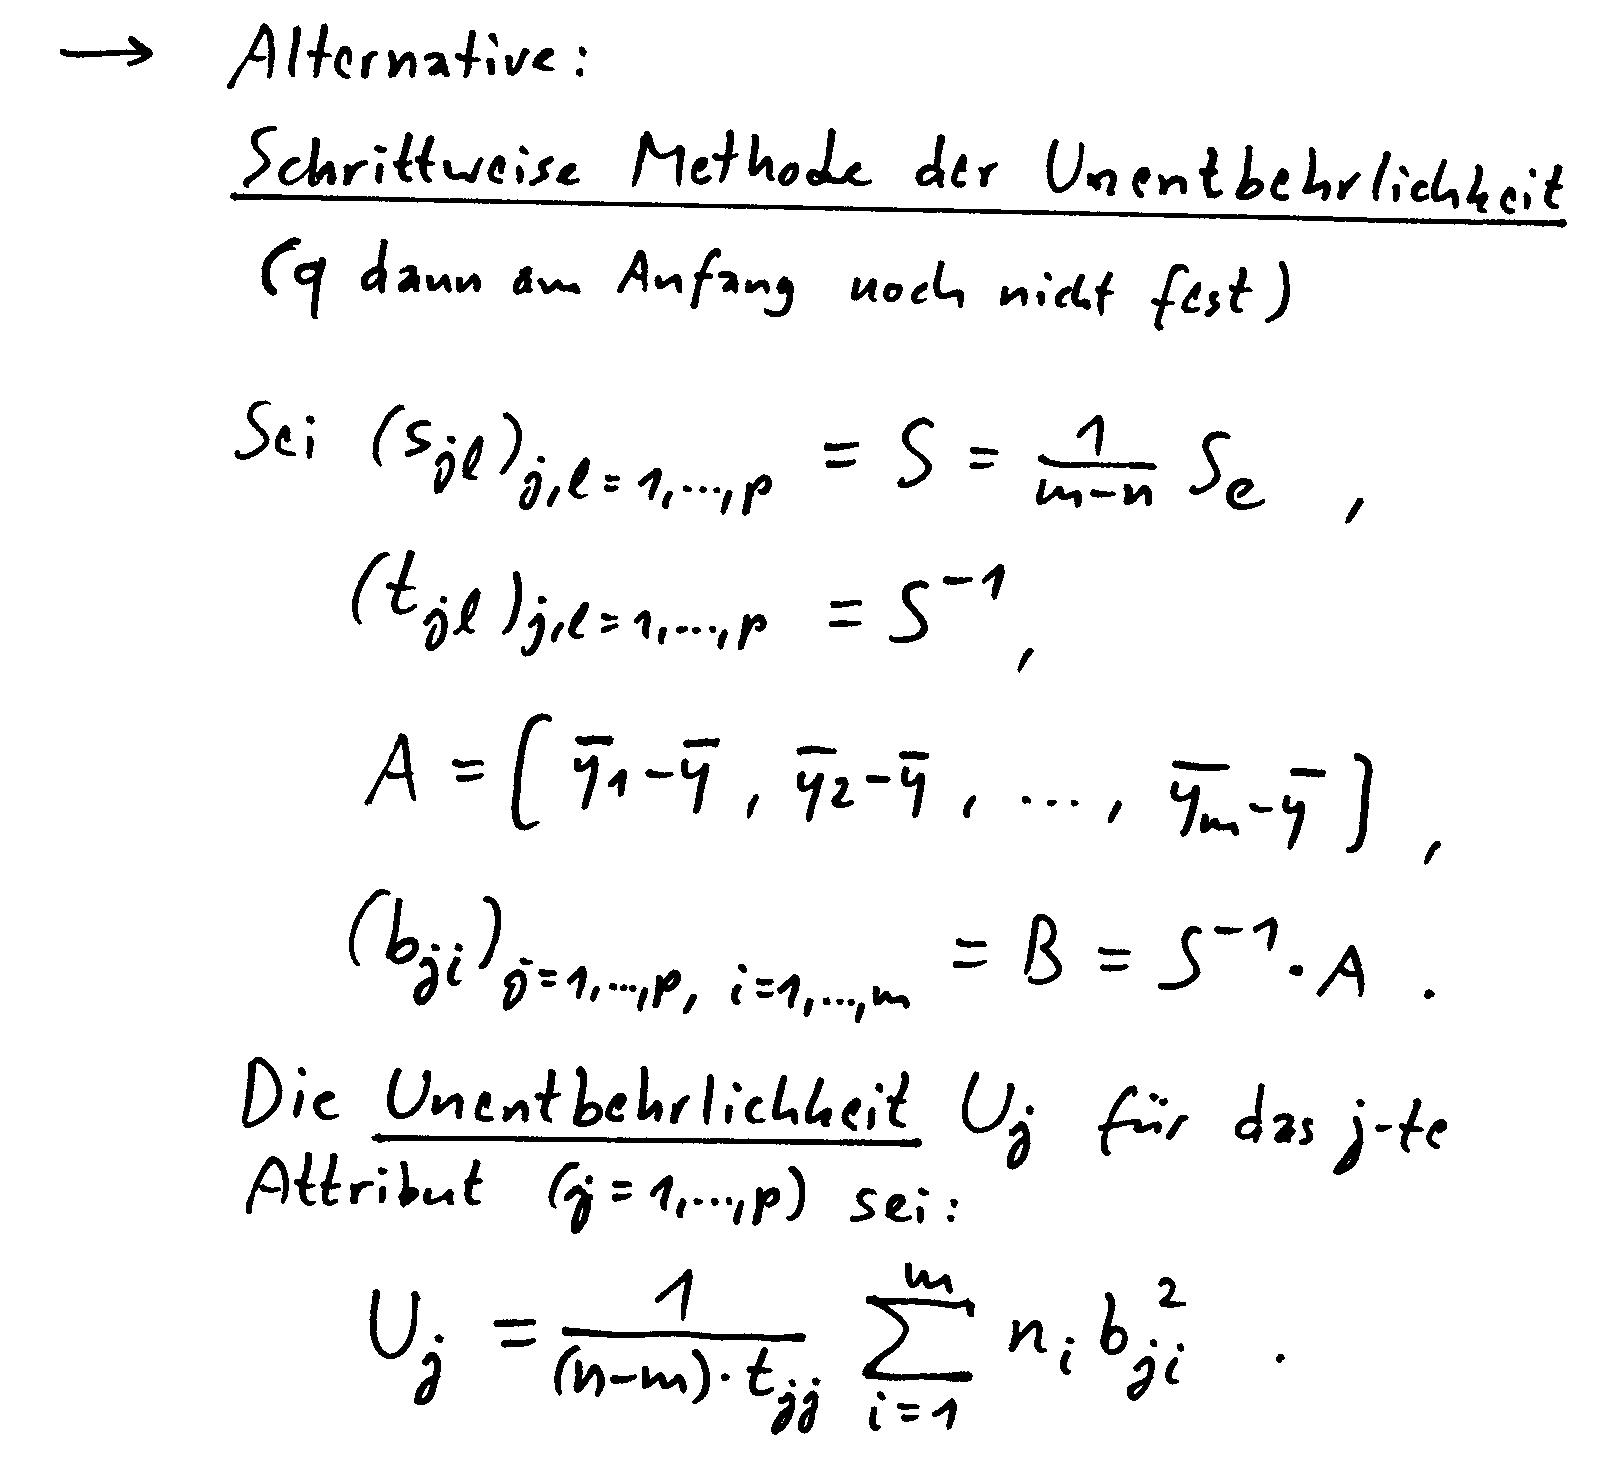 → Alternative:
Schrittweise Methode der Unentbehrlichkeit
(q dann am Anfang noch nicht fest)
Sei (s_{jl})_{j,l=1,...,p} = S = \frac{1}{m-n} S_e ,
(t_{jl})_{j,l=1,...,p} = S^{-1} ,
A = [ \bar{y}_1 - \bar{y} , \bar{y}_2 - \bar{y} , ... , \bar{y}_m - \bar{y} ] ,
(b_{ji})_{j=1,...,p, i=1,...,m} = B = S^{-1} · A .
Die Unentbehrlichkeit U_j für das j-te
Attribut (j=1,...,p) sei:
U_j = \frac{1}{(n-m) · t_{jj}} \sum_{i=1}^{m} n_i b_{ji}^2 .